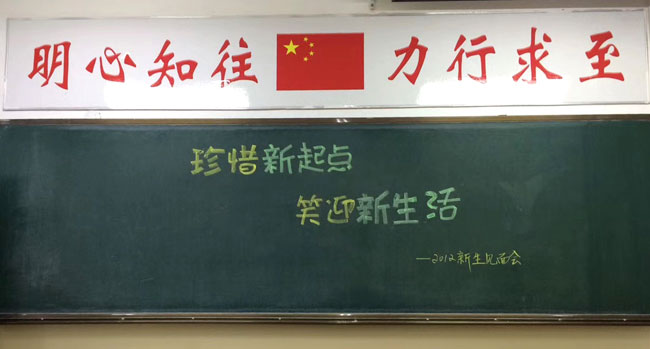 明心知往 力行求至
珍惜新起点
笑迎新生活
—2012新生见面会